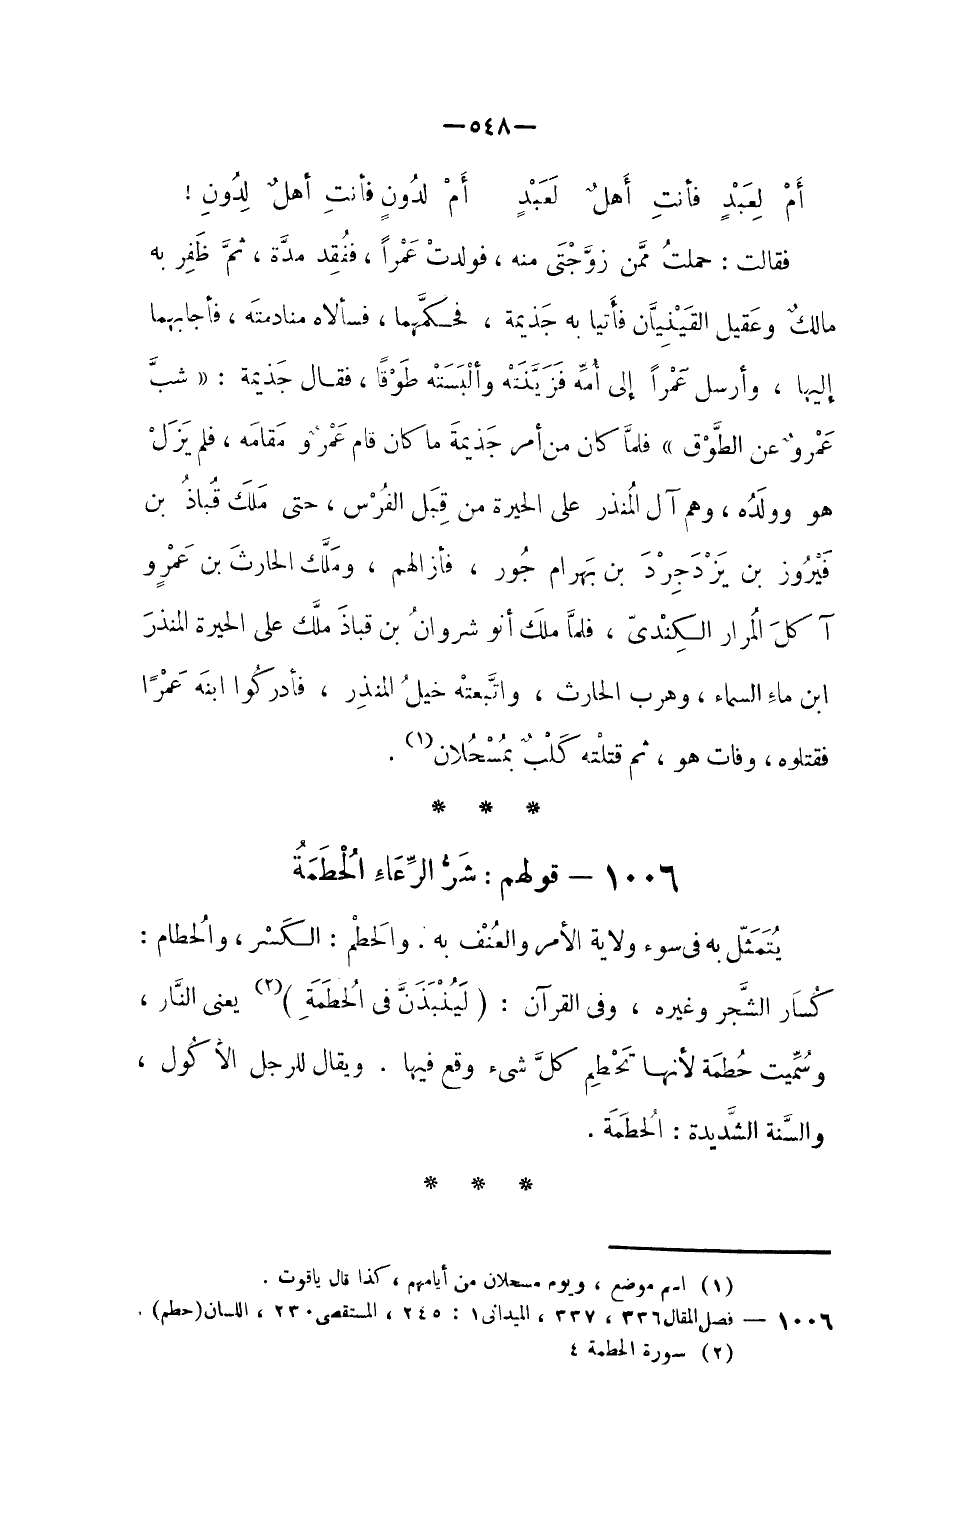 —٥٤٨—
أَمْ لِعَبْدٍ فأنتِ أَهلٌ لَعَبْدٍ أَمْ لدُونٍ فأنتِ أهلٌ لِدُونِ !
فقالت : حملتُ ممَّن زوَّجْتَنى منه ، فولدتْ عَمْراً ، ففُقِد مدَّة ، ثمَّ ظَفِر به
مالكٌ وعَقيل القَيْنِيَّان فأَتيا به جَذيمة ، فحكَّمهما ، فسألاه منادمتَه ، فأجابهما
إليها ، وأرسل عَمْراً إلى أُمِّه فَزَيَّنَتْه وألْبَسَتْه طَوْقًا ، فقال جَذيمة : « شبَّ
عَمْروٌ عن الطَّوْق » فلمَّا كان من أمر جَذيمةَ ما كان قام عَمْرٌو مَقامَه ، فلم يَزَلْ
هو وولَدُه ، وهم آل المُنذر على الحيرة من قِبَل الفُرْس ، حتى مَلَكَ قُباذُ بن
فَيْرُوز بن يَزْدَجِرْدَ بن بَهرام جُور ، فأزالهم ، وملَّك الحارثَ بن عَمْرٍو
آكلَ المُرار الكِنْدىّ ، فلمَّا ملَك أنو شروانُ بن قباذَ ملَّك على الحيرة المنذرَ
ابن ماءِ السماء ، وهرب الحارث ، واتَّبعتْه خيلُ المنذِر ، فأدركُوا ابنَه عَمْرًا
فقتلوه ، وفات هو ، ثم قتلْته كَلْبٌ بمُسْحُلان(١) .
* * *
١٠٠٦ — قولهم : شَرُّ الرِّعَاءِ الْحُطَمَةُ
يُتَمَثَّل به فى سوء ولاية الأمر والعُنْف به . والحَطْم : الكَسْر ، والحُطام :
كُسَار الشَّجر وغيره ، وفى القرآن : ( لَيُنْبَذَنَّ فى الحُطَمَةِ )(٢) يعنى النَّار ،
وسُمِّيت حُطمَة لأنها تَحْطِم كلَّ شىء وقع فيها . ويقال للرجل الأكُول ،
والسَّنة الشَّديدة : الحُطَمَة .
* * *
(١) اسم موضع ، ويوم مسحلان من أيامهم ، كذا قال ياقوت .
١٠٠٦ — فصل المقال ٣٣٦ ، ٣٣٧ ، الميدانى ١ : ٢٤٥ ، المستقصى ٢٣٠ ، اللسان (حطم) .
(٢) سورة الحطمة ٤